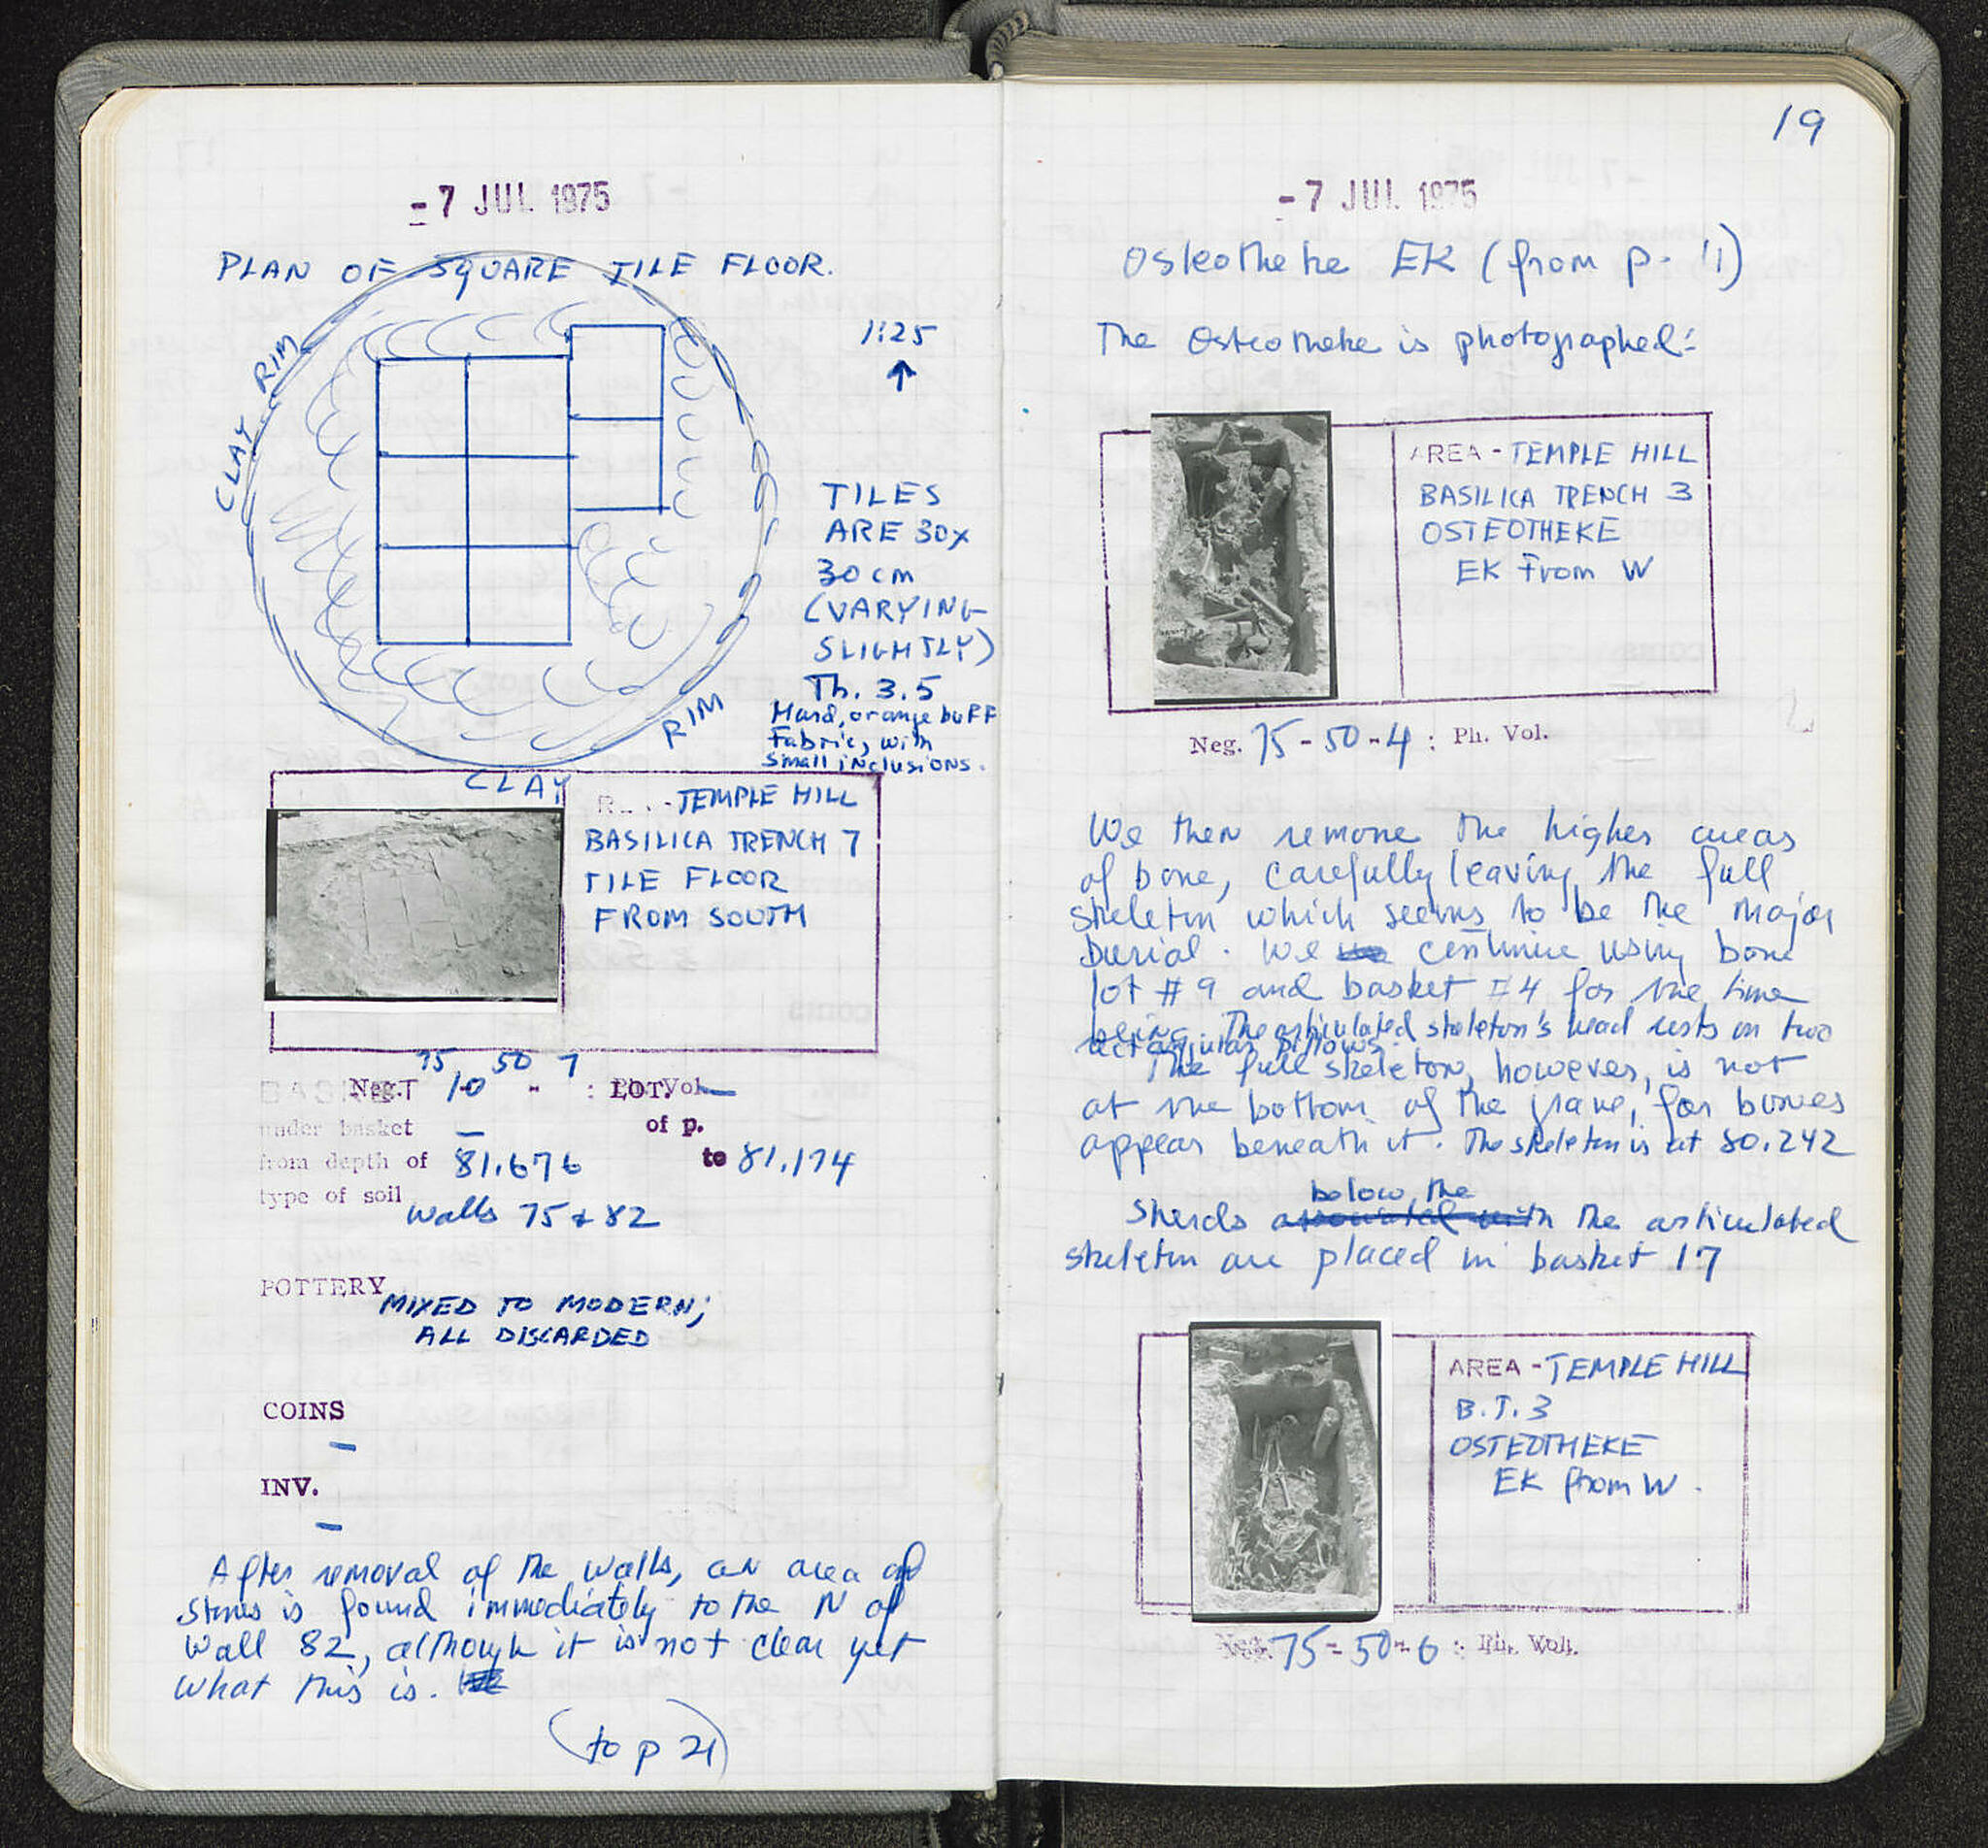 -7 JUL 1975
PLAN OF SQUARE TILE FLOOR.
1:25
CLAY RIM
TILES
ARE 30x
30 cm
(VARYING
SLIGHTLY)
Th. 3.5
Hard, orange buff
Fabric, with
small inclusions.
RIM
CLAY
- TEMPLE HILL
BASILICA TRENCH 7
TILE FLOOR
FROM SOUTH
75 50 7
BASKET 10 LOT. —
under basket — of p.
from depth of 81.676 to 81.174
type of soil
walls 75 & 82
POTTERY
MIXED TO MODERN;
ALL DISCARDED
COINS
—
INV.
—
After removal of the walls, an area of
stones is found immediately to the N of
Wall 82, although it is not clear yet
what this is.
(to p 21)
19
-7 JUL 1975
Osteotheke EK (from p. 11)
The Osteotheke is photographed:
AREA - TEMPLE HILL
BASILICA TRENCH 3
OSTEOTHEKE
EK from W
Neg. 75-50-4 : Ph. Vol.
We then remove the higher areas
of bone, carefully leaving the full
skeleton which seems to be the major
burial. We continue using bone
lot #9 and basket #4 for the time
being. The articulated skeleton's head rests on two
rectangular pillows.
The full skeleton, however, is not
at the bottom of the grave, for bones
appear beneath it. The skeleton is at 80.242
below the
Sherds associated with the articulated
skeleton are placed in basket 17
AREA - TEMPLE HILL
B.T.3
OSTEOTHEKE
EK from W.
Neg. 75-50-6 : Ph. Vol.